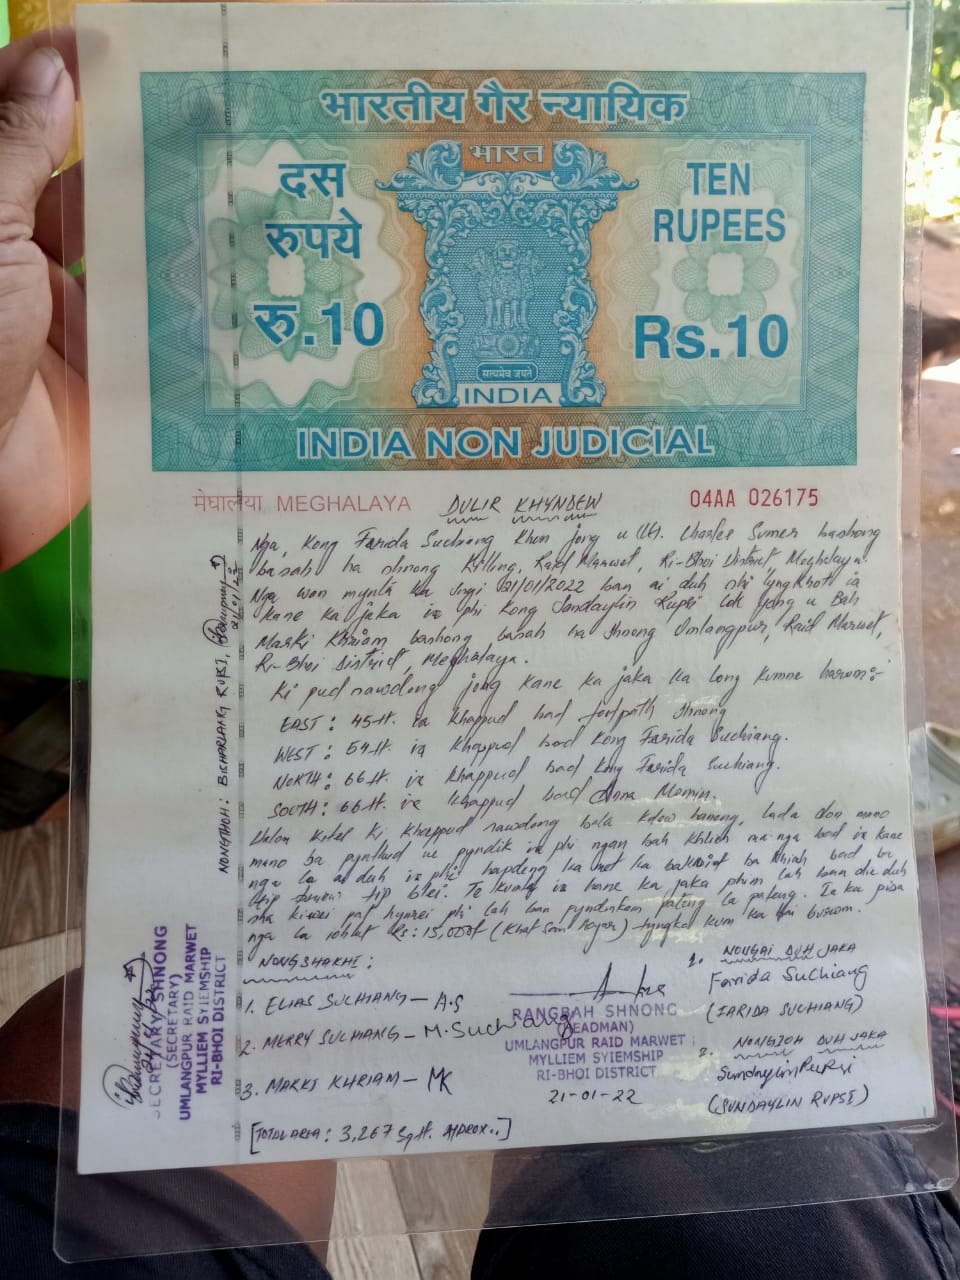 भारतीय गैर न्यायिक
भारत
दस
रुपये
रु.10
TEN
RUPEES
Rs.10
सत्यमेव जयते
INDIA
INDIA NON JUDICIAL
मेघालया MEGHALAYA
04AA 026175
DULIR KHYNDEW
Nga, Kong Farida Suchiang Khun jong u (Lt). Charles Sumer bashong
basah ha shnong Killing, Raid Marwet, Ri-Bhoi District, Meghalaya.
Nga wan mynta ka sngi 21/01/2022 ban ai duh shi iyngkhot ia
kane ka jaka ia phi Kong Sundaylin Rupsi lok jong u Bah
Marki Khriam bashong basah ha shnong Umlangpur, Raid Marwet,
Ri-Bhoi District, Meghalaya.
Ki pud sawdong jong kane ka jaka ka long kumne harum:-
EAST : 45 ft. ia khappud bad footpath shnong
WEST : 54 ft. ia khappud bad Kong Farida Suchiang.
NORTH : 66 ft. ia khappud bad Kong Farida Suchiang.
SOUTH : 66 ft. ia khappud bad Anna Momin.
Halor kitei ki khappud sawdong bala kdew haneng, lada don mano
mano ba pynthut ne pyndik ia phi ngan bah khlieh ma nga bad ia kane
nga la ai duh ia phi hapdeng ka met ka bakoit ba khiah bad ba
tip briew tip blei. Te kumta ia kane ka jaka phim lah ban die duh
sha kiwei pat hynrei phi lah ban pyndonkam pateng la pateng. Ia ka pisa
nga la ioh Rs: 15,000/- (Khatsan hajar) tyngka kum ka bai buskom.
NONGSHAKHI :
1. ELIAS SUCHIANG – A.S
2. MERRY SUCHIANG – M. Suchiang
3. MARKI KHRIAM – MK
[TOTAL AREA : 3,267 Sq ft. Approx..]
RANGBAH SHNONG
(HEADMAN)
UMLANGPUR RAID MARWET
MYLLIEM SYIEMSHIP
RI-BHOI DISTRICT
21-01-22
1. NONGAI DUH JAKA
Farida Suchiang
(FARIDA SUCHIANG)
2. NONGIOH DUH JAKA
Sundaylin Rupsi
(SUNDAYLIN RUPSI)
NONGTHOH : BISHARLANG RUPSI,
21/01/22
SECRETARY SHNONG
(SECRETARY)
UMLANGPUR RAID MARWET
MYLLIEM SYIEMSHIP
RI-BHOI DISTRICT